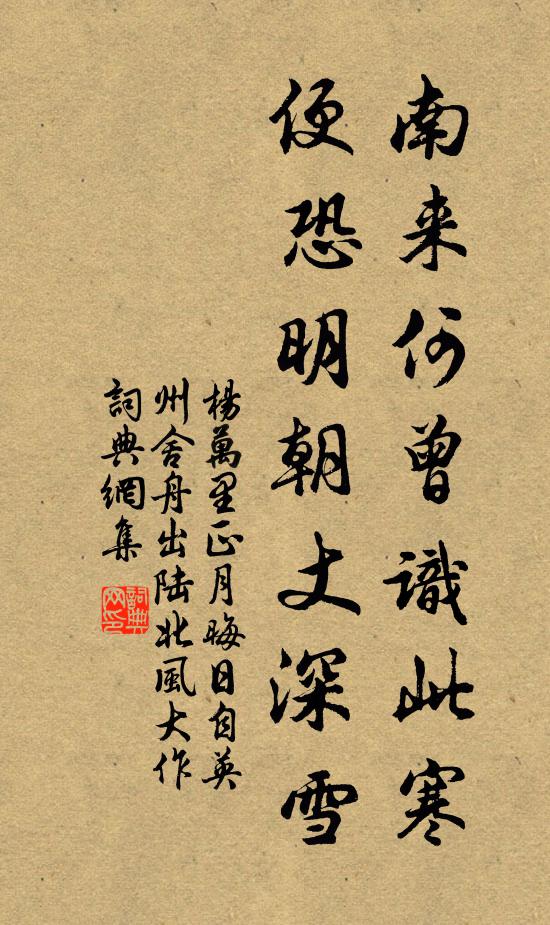 南来何曾識此寒
便恐明朝丈深雪
楊萬里正月晦日自英
州舍舟出陆北風大作
詞典網集
詞典网印